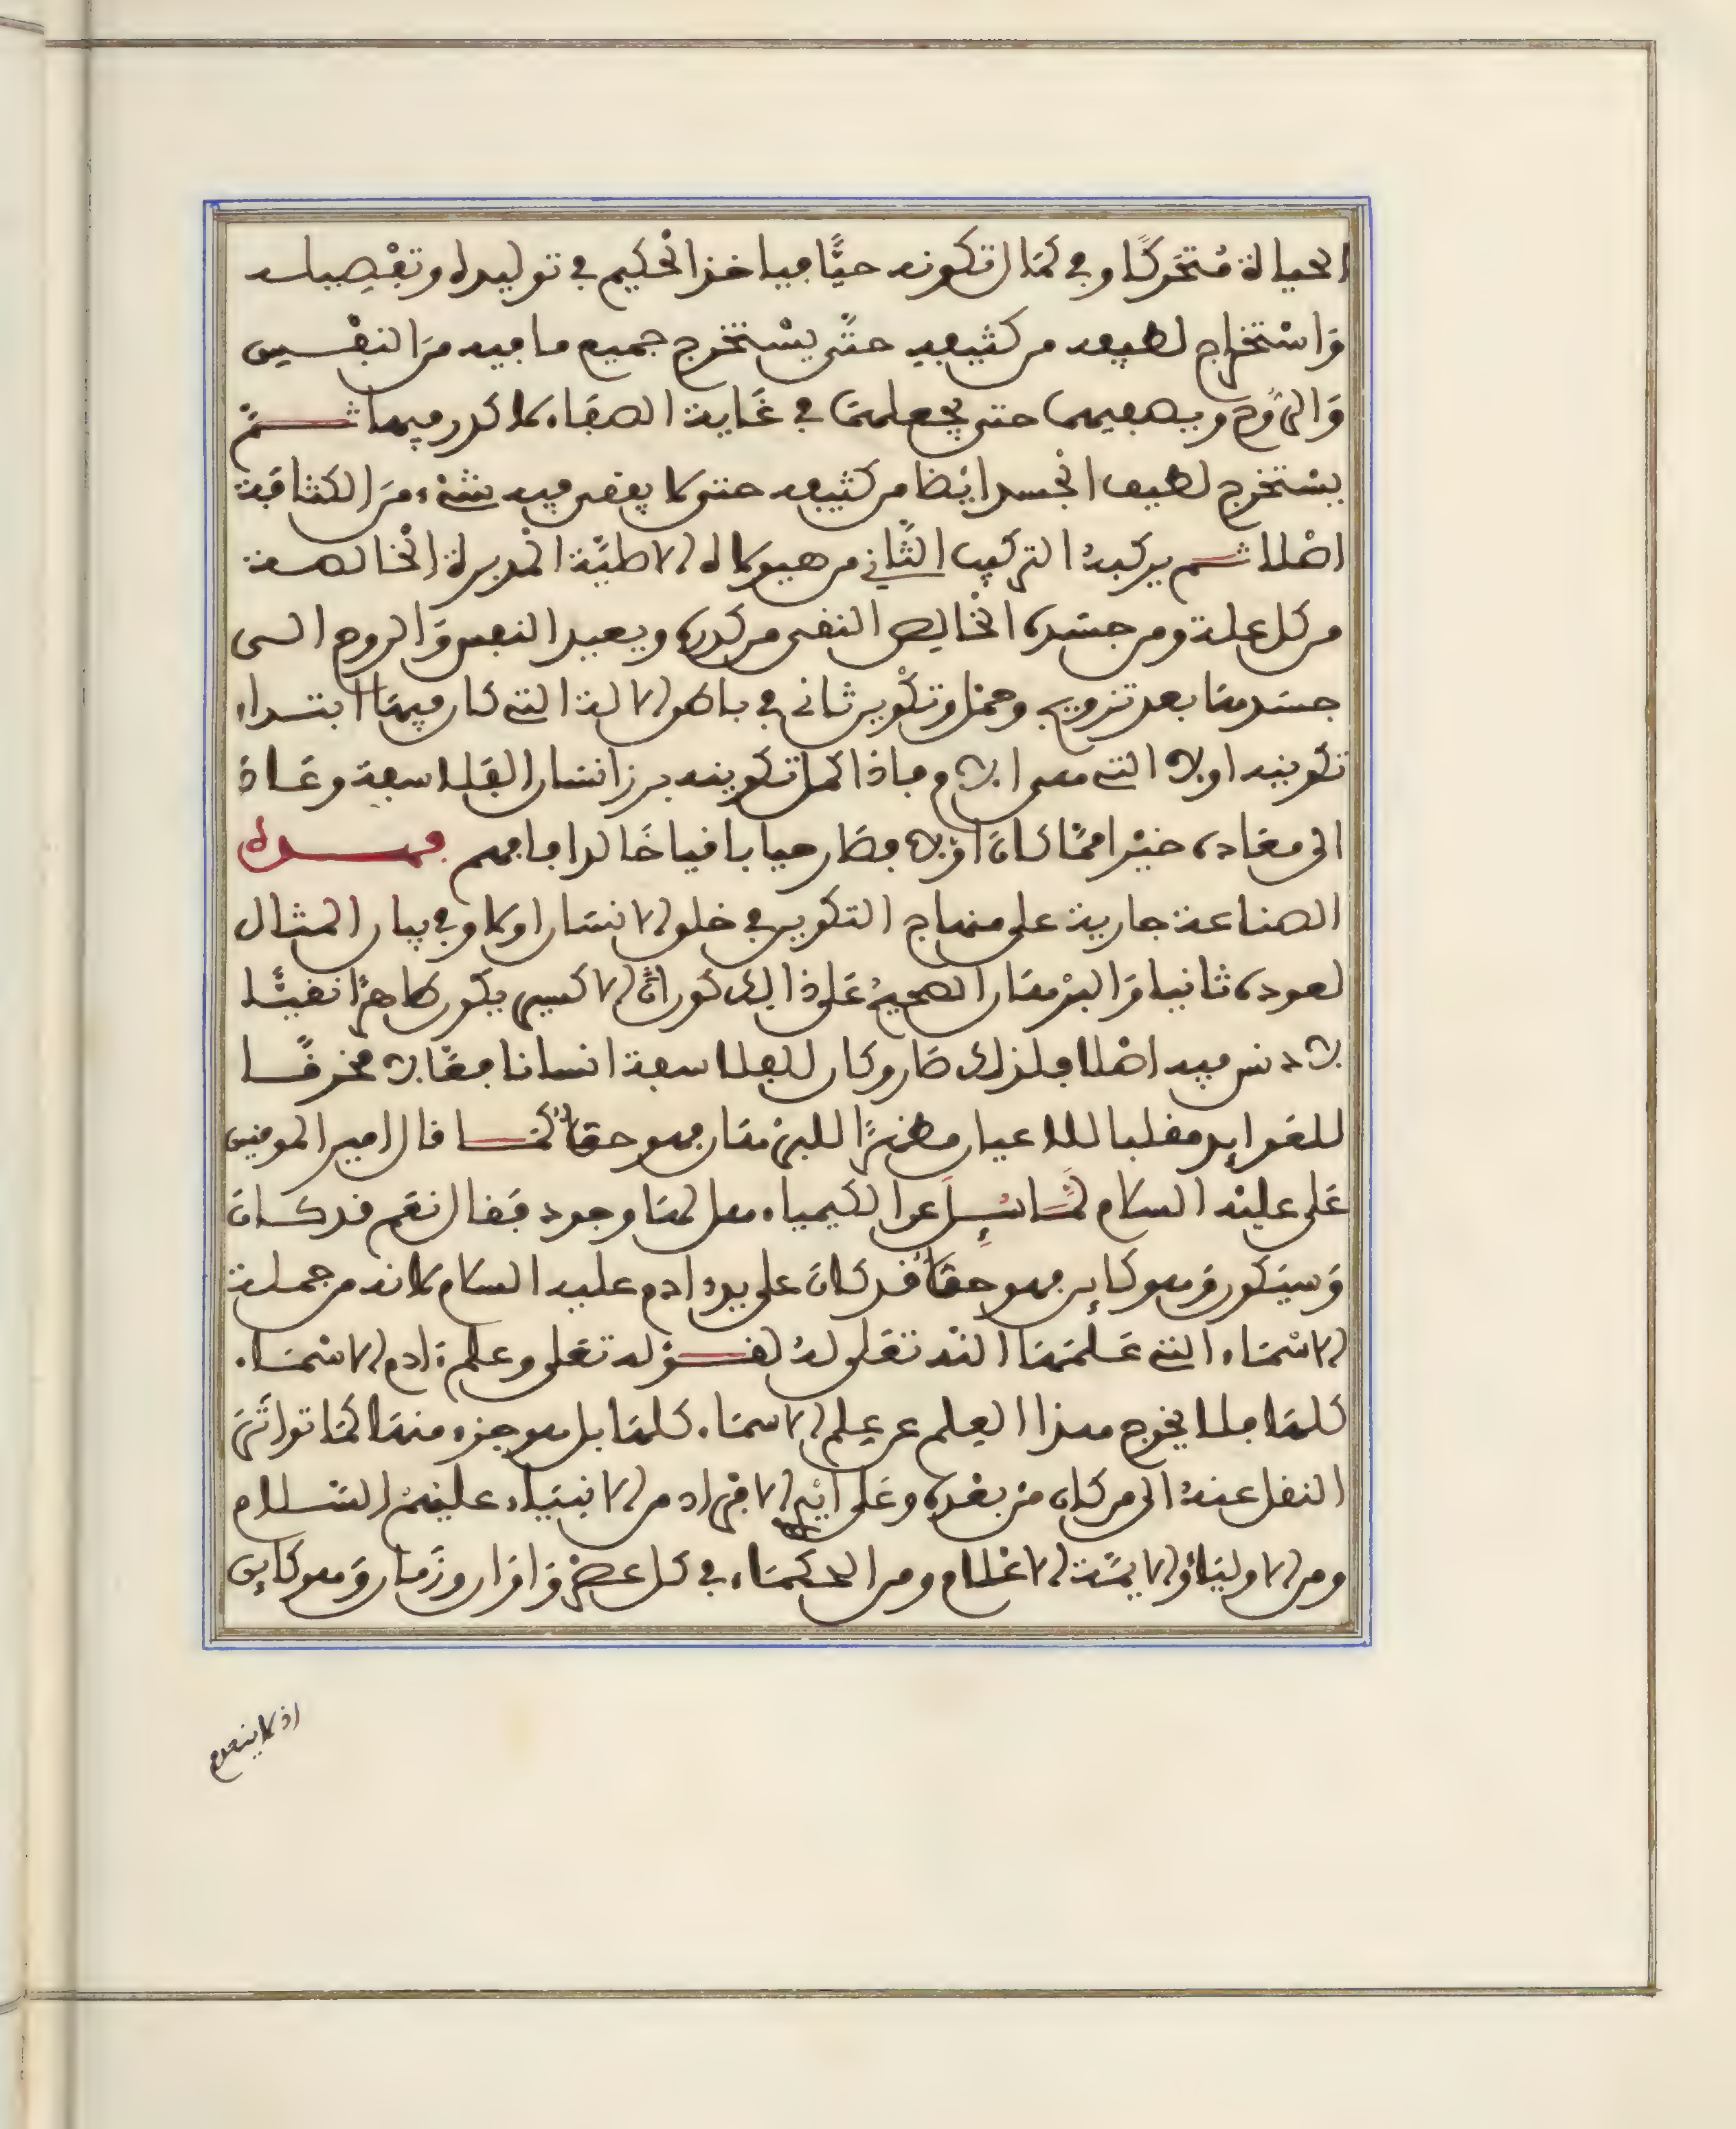 الحياة مُتحَركًا وفي كمَال تكونه حيًّا فياخذ الحْكيم في توليده وتفْصِيله
وَاسْتخراج لطيفه من كثيفه حتَّى يسْتخرج جميع ما فيه منَ النفْس
وَالرُّوح ويصفيهما حتى يجعلهمَا في غَاية الصفَاء لا كدر فيهما ثمَّ
يسْتخرج لطيف الجْسد ايْضا من كثيفه حتى لا يبقى فيه شىْء منَ الكثافَة
اصْلا ثم يركبهُ التركيب الثَّاني من هيولاه الاصليَّة المْدبرة الخْالصة
من كل علة ومن جسَده الخْالِص النقى من كدره ويعيد النفس وَالروح الى
جسَدهمَا بعد تزويج وحمْل وتكْوين ثانى في باطن الالة التى كان فيهَا ابتداء
تكوينه اولا التى هى الام فاذا كمل تكوينه برز انسَان الفَلاسفة وعَاد
الى معَاده خيْرا ممَّا كانَ اوَّلا فصَار حيا باقيا خَالدا فافهم فهذه
الصناعة جارية على منهاج التكوين في خلق الانسَان اولا وفي بيان المثال
لعوده ثانيا وَالبرْهَان الصحيحُ عَلى ذالك كون انَّ الاكسير يكون طاهرًا نقيًّا
لا دنس فيه اصْلا فلذلك صَار وكان للفلاسفة انسانا فعَّالا مخرقًا
للعوايد مقلبا للاعيان مظهرًا للبرْهَان فهو حقٌّ كمَا قال امير المومنين
عَلى عليْه السلام لمَّا سُئِل عن الكيمياء هل لهَا وجود فَقال نعَم قد كانَ
وَسيَكون وَهو كاين فهو حقٌّ قد كانَ على يد ادم عليه السلام لانه من جملة
الاسْمَاء التى عَلمَهَا اللَّه تعَلى لهُ لقوْله تعَلى وعلم ءادم الاسْمَاء
كلهَا فلا يخرج هذا العِلم عن عِلم الاسمَاء كلهَا بل هو جزء منهَا كمَا تواتَرَ
النقل عنهُ الى من كان منْ بعْدِه وعَلى ايْدِى الافْرَاد من الانبيَاء عليهمُ السَّلام
ومن الاوليَاء وَالايمَّة الاعْلام ومن الحكمَاء في كل عصْر وَاوَان وزَمان وَهو كاين
اذ لا ينعدم